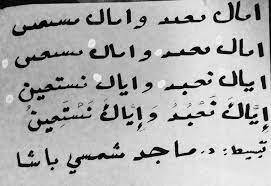 اىاك ىعىد واىاك ىسىعىں
اىاك ىعىد واىاك ىسىعىں
اياك نعبد واياك نستعين
إِيَّاكَ نَعْبُدُ وَإِيَّاكَ نَسْتَعِينُ
تبسيط: د. ماجد شمسي باشا